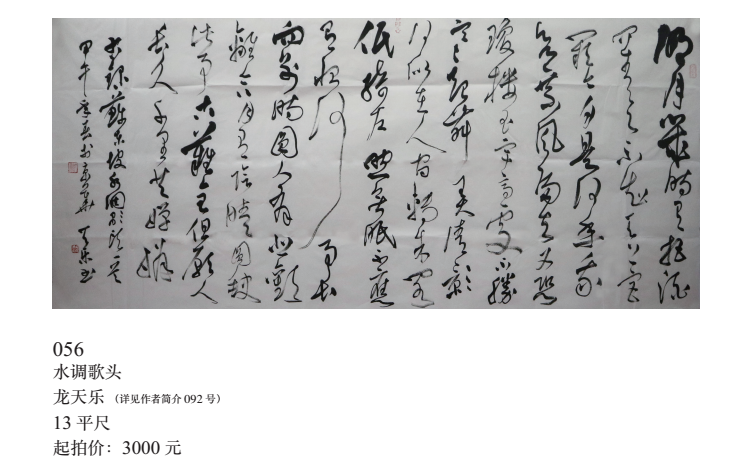 明月幾時有把酒
问青天不知天上宫
阙今夕是何年我
欲乘风归去又恐
瓊樓玉宇高處不勝
寒起舞弄清影
何似在人间轉朱阁
低绮户照無眠不應
有恨何事长
向别時圓人有悲歡
離合月有陰晴圆缺
此事古難全但願人
長久千里共嬋娟
蘇東坡水调歌头一首
甲午 天乐书
056
水调歌头
龙天乐（详见作者简介 092 号）
13 平尺
起拍价：3000 元